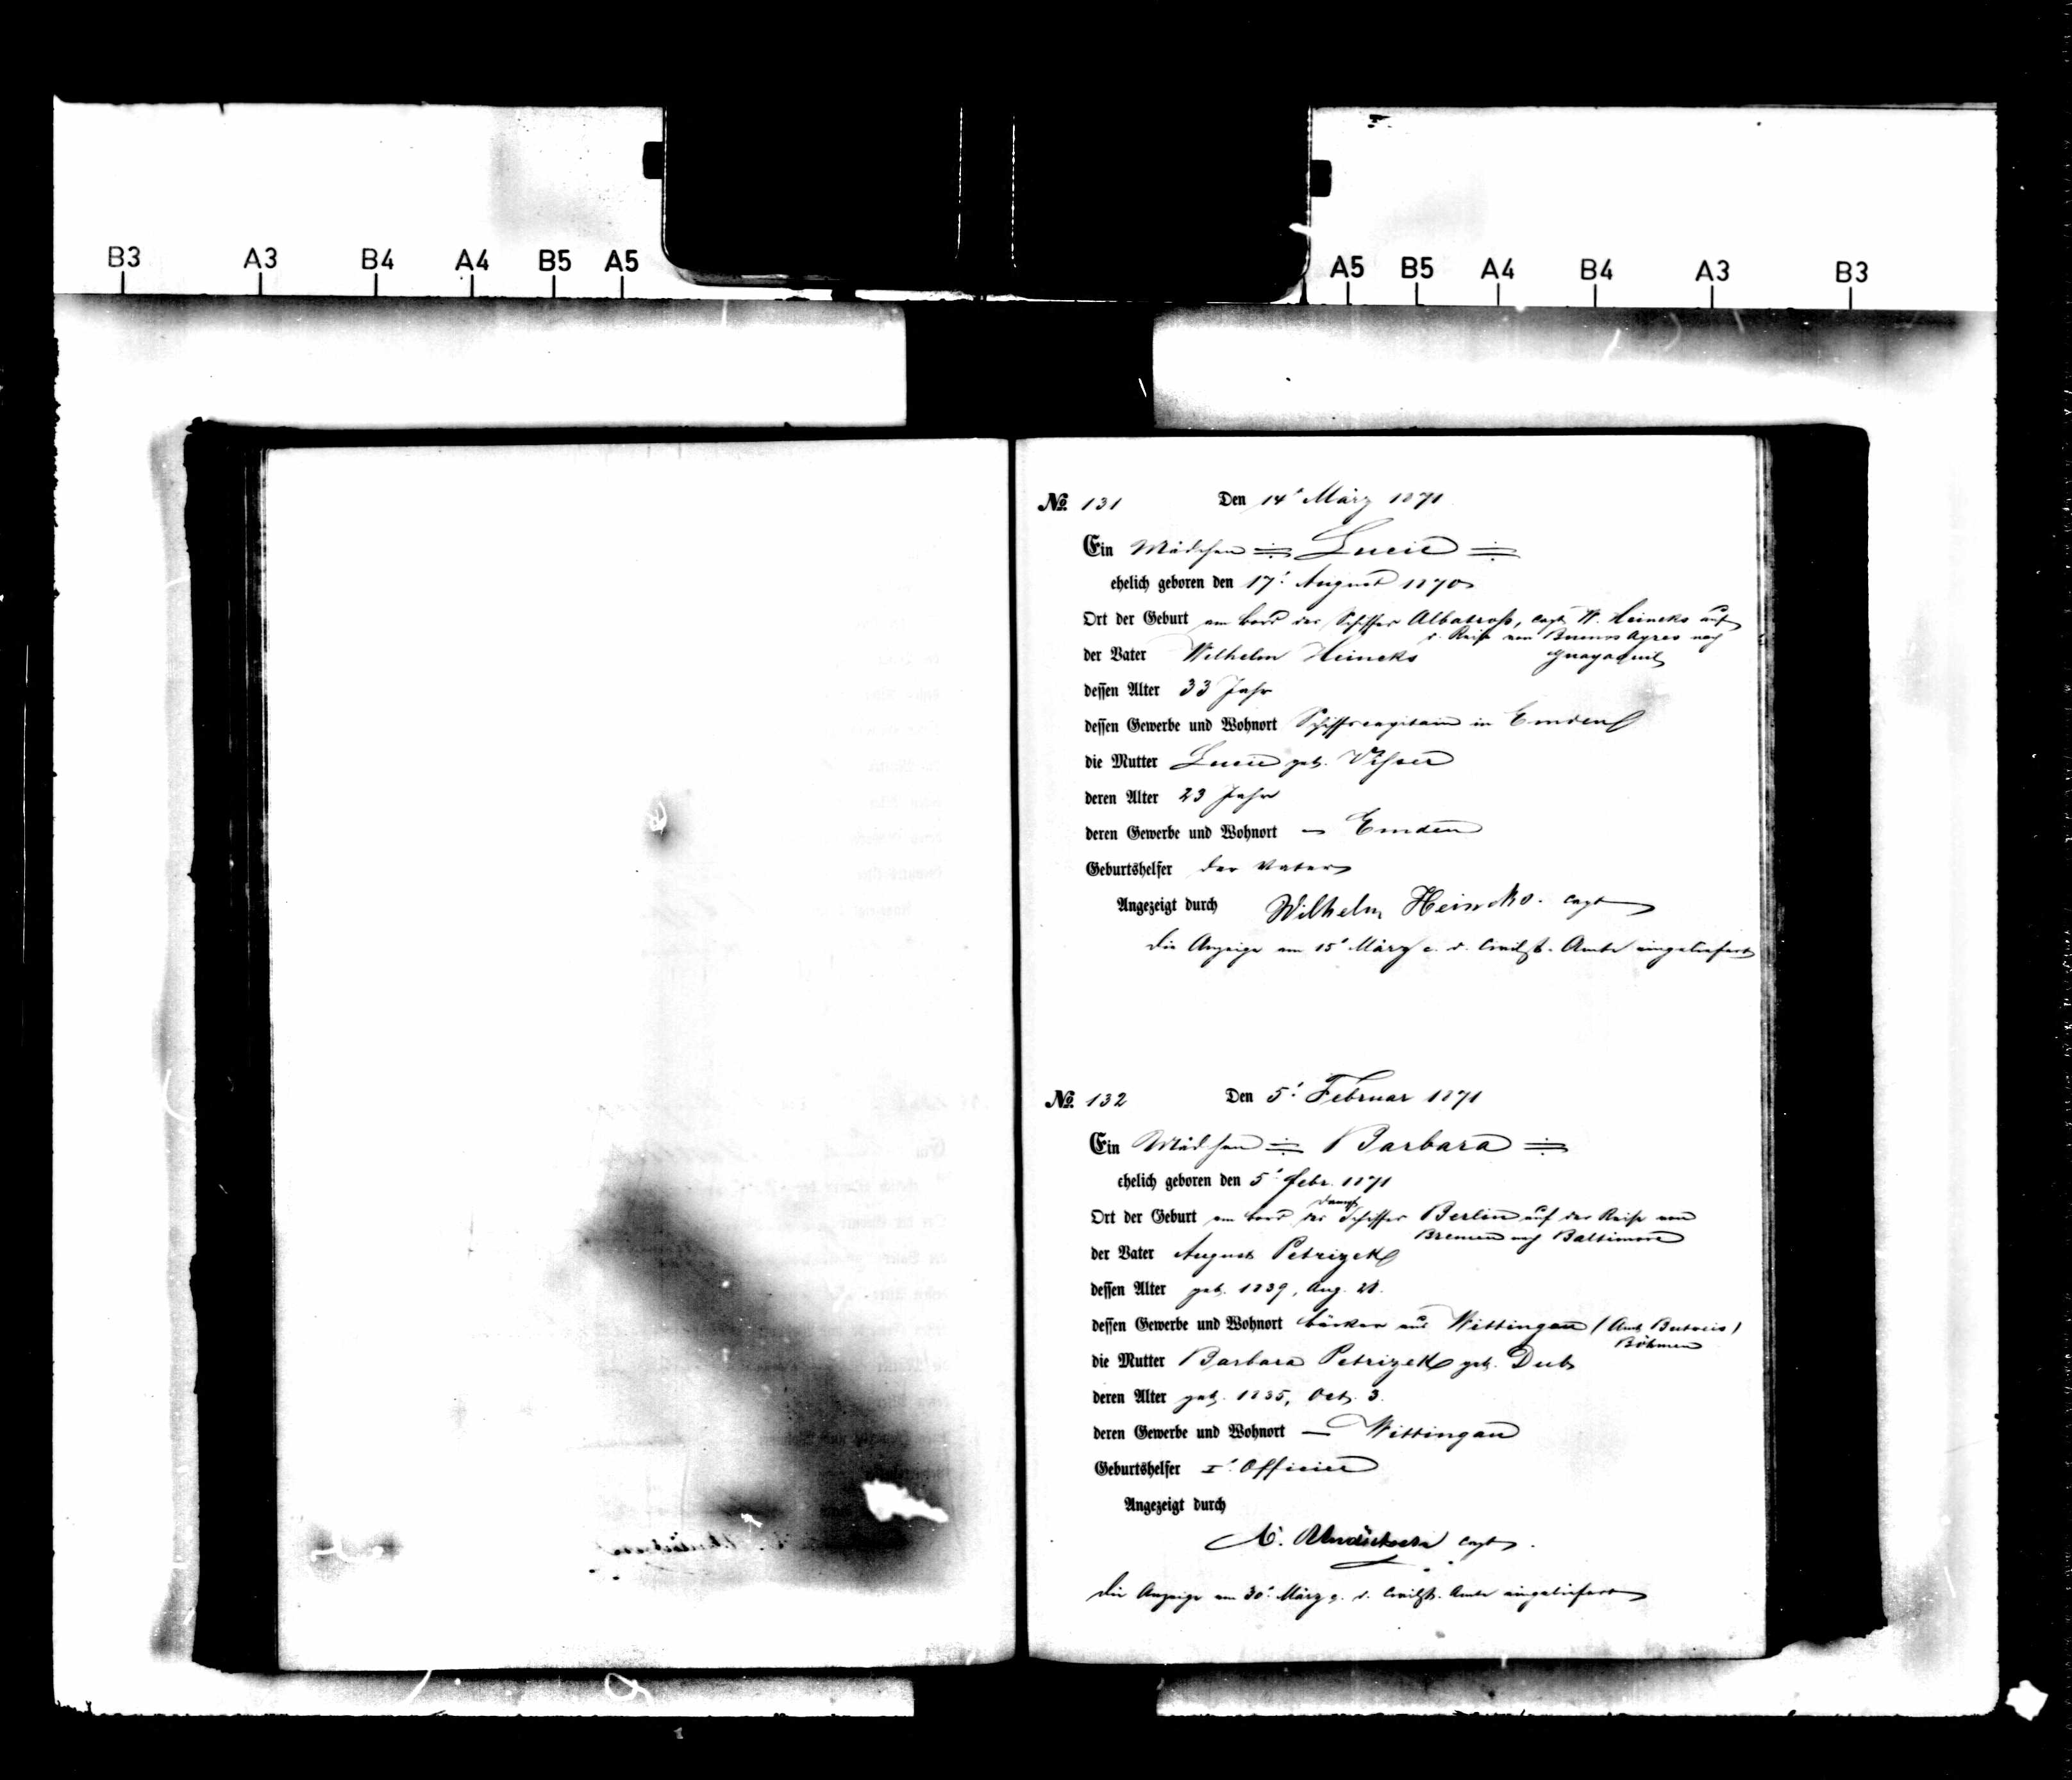 B3 A3 B4 A4 B5 A5
A5 B5 A4 B4 A3 B3
№ 131 Den 14t März 1871
Ein Mädchen Lucie
ehelich geboren den 17t August 1870
Ort der Geburt am bord des Schiffes Albatross, Capt. W. Heincks auf
d. Reise von Buenos Ayres nach
der Vater Wilhelm Heincks Guayaquil
dessen Alter 33 Jahr
dessen Gewerbe und Wohnort Schiffscapitain in Emden
die Mutter Lucie geb. Visser
deren Alter 23 Jahr
deren Gewerbe und Wohnort — Emden
Geburtshelfer der Vater
Angezeigt durch Wilhelm Heincks. Capt
Die Anzeige am 15t März c. d. Civilst. Amte eingeliefert
№ 132 Den 5t Februar 1871
Ein Mädchen Barbara
ehelich geboren den 5t Febr. 1871
Dampf
Ort der Geburt am bord des Schiffes Berlin auf der Reise von
Bremen nach Baltimore
der Vater August Petrizek
dessen Alter geb. 1839, Aug. 28.
dessen Gewerbe und Wohnort bäcker aus Wittingau (Amt Butweis)
Böhmen
die Mutter Barbara Petrizek geb. Dub
deren Alter geb. 1835, Oct. 3.
deren Gewerbe und Wohnort — Wittingau
Geburtshelfer I. Officier
Angezeigt durch
Capt.
Die Anzeige am 30t März c. d. Civilst. Amte eingeliefert